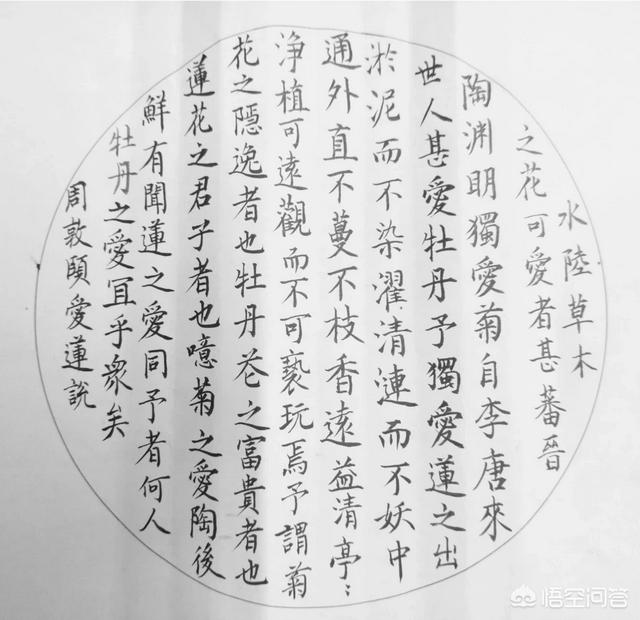 水陸草木
之花可愛者甚蕃晉
陶渊明獨愛菊自李唐來
世人甚愛牡丹予獨愛蓮之出
淤泥而不染濯清漣而不妖中
通外直不蔓不枝香遠益清亭〻
淨植可遠觀而不可褻玩焉予謂菊
花之隱逸者也牡丹花之富貴者也
蓮花之君子者也噫菊之愛陶後
鮮有聞蓮之愛同予者何人
牡丹之愛冝乎眾矣
周敦頤愛蓮説
悟空问答